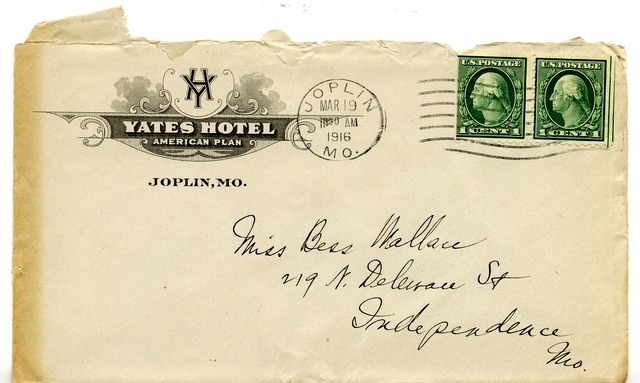 YH
YATES HOTEL
AMERICAN PLAN
JOPLIN, MO.
JOPLIN
MAR 19
AM
1916
MO.
U.S. POSTAGE
1 CENT 1
U.S. POSTAGE
1 CENT 1
Miss Bess Wallace
219 N. Deleware St
Independence
Mo.